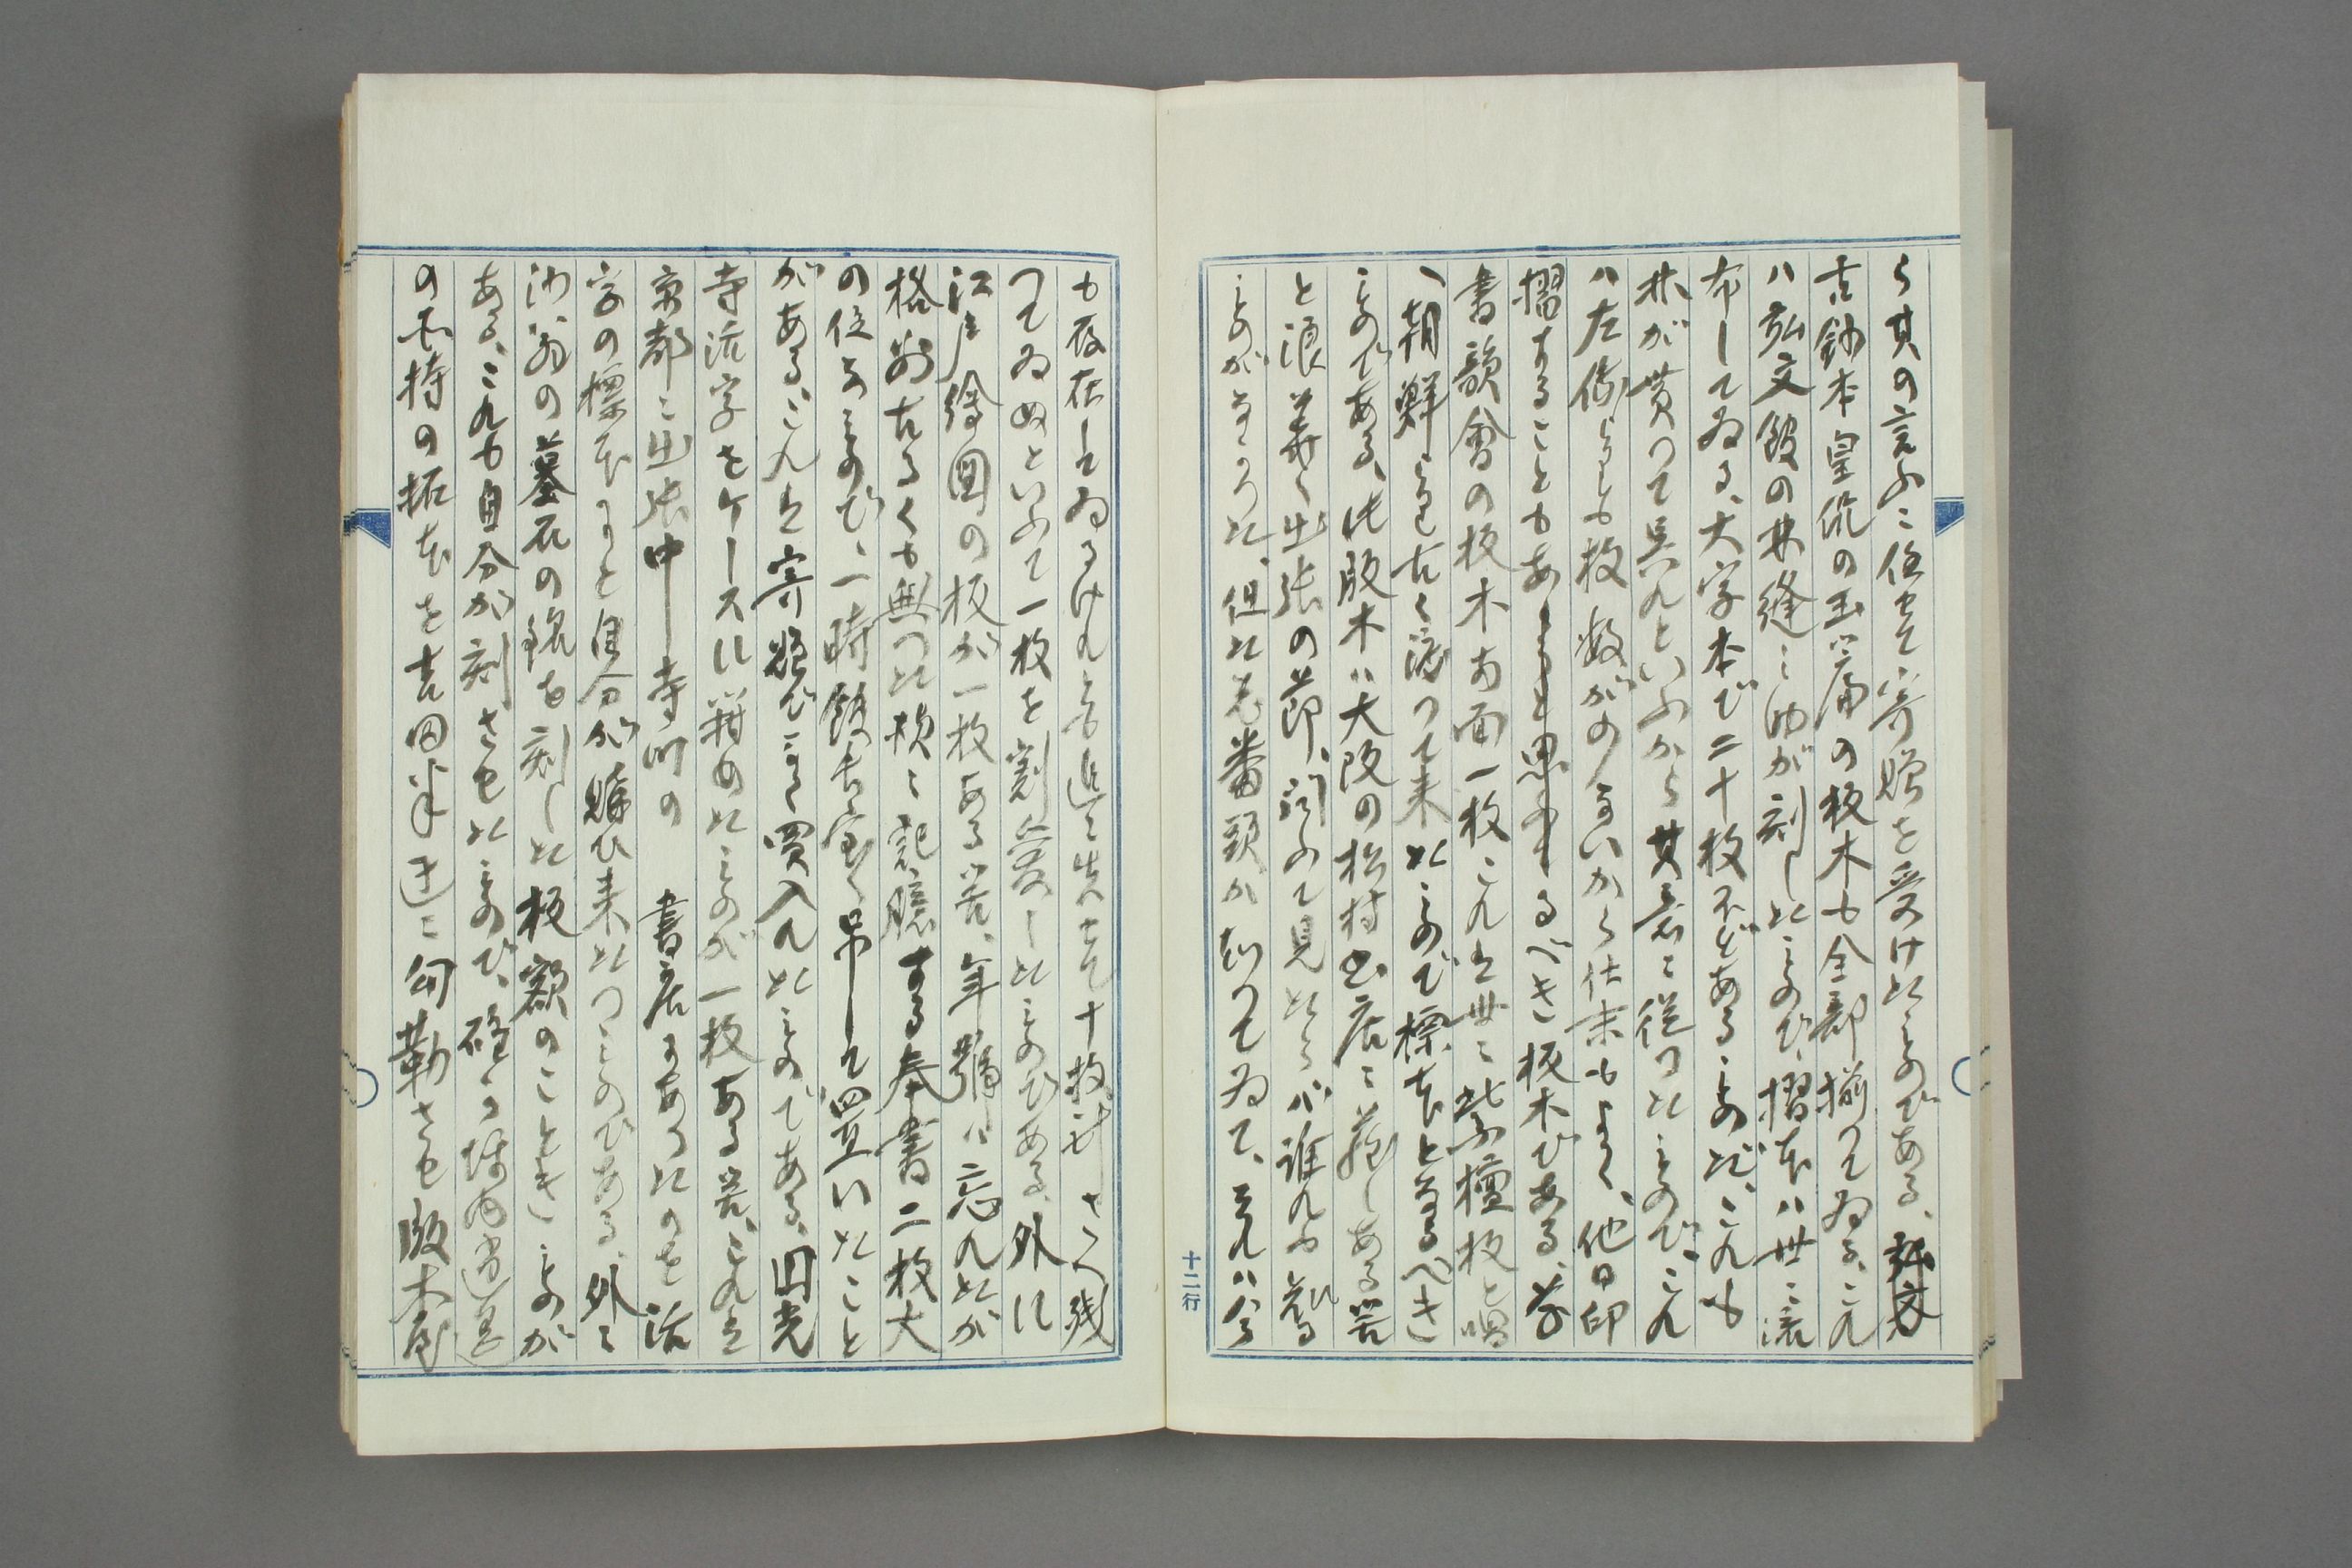 ら其の言ふに任せて寄贈を受けたものである、
古鈔本皇侃の玉篇の板木も全部揃つてゐる、これ
ハ弘文館の林縫之助が刻したもので、摺本ハ世に流
布してゐる、大字本で二十枚ほどある、ものだ、これも
林が貰つて呉れといふから其意に従つたもので、これ
ハ左傳よりも枚数が少ないから仕末もよく、他日印
摺することもあるべき板木である、
書韻會の板木両面一枚これは世に紫檀板と唱
へ朝鮮より古く渡つて来たもので標本となるべき
ものである、此版木ハ大阪の松村書店に蔵しある筈
と浪華へ出張の節、訪ふて見たら小誰れも知る
ものがなかつた、但た老番頭が知つてゐて、それハ今
も存在してゐるけれども追々失せて十枚許さへ残
つてゐぬといふて一枚を割愛したものである、外に
江戸繪図の板が一枚ある筈、年号ハ忘れたが
格別古るくも無つた様に記憶する奉書二枚大
の位なもので、一時館長室へ吊して置いたこと
がある、これは寄贈でなく買入れたものである、円光
寺活字をケースに詰めたものが一枚ある筈、これは
京都に出張中 寺町の 書店にあつたのを活
字の標本にもと自分が購ひ来たつたものである、外に
沖翁の墓石の銘を刻した板額のこときものが
ある、これも自分が刻させたもので、確か坪内逍遥
の所持の拓本を吉田半迂に勾勒させ版木屋